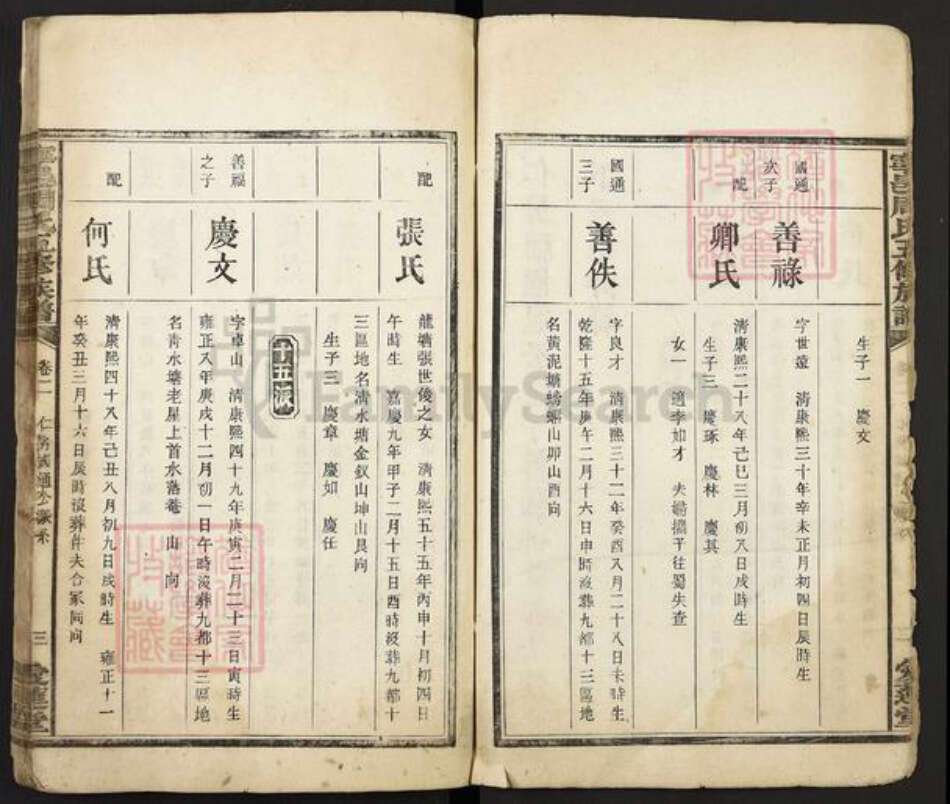 寧邑周氏五修族譜
愛蓮堂
生子一 慶文
國通次子
善祿
字世遠 清康熙三十年辛未正月初四日辰時生
配
卿氏
清康熙二十八年己巳三月初八日戌時生
生子三 慶琢 慶林 慶其
女一 適李如才 夫婦攜子往蜀失查
國通三子
善佚
字良才 清康熙三十二年癸酉八月二十八日未時生
乾隆十五年庚午二月十六日申時歿葬九都十三區地
名黃泥塘螃蟹山卯山酉向
配
張氏
龍塘張世後之女 清康熙五十五年丙申十月初四日
午時生 嘉慶九年甲子二月十五日酉時歿葬九都十
三區地名清水塘金釵山坤山艮向
生子三 慶章 慶如 慶任
十五派
善福之子
慶文
字卓山 清康熙四十九年庚寅二月二十三日寅時生
雍正八年庚戌十二月初一日午時歿葬九都十三區地
名青水塘老屋上首水落菴 山 向
配
何氏
清康熙四十八年己丑八月初九日戌時生 雍正十一
年癸丑三月十六日辰時歿葬件夫合冢同向
寧邑周氏五修族譜
卷二
三
愛蓮堂
FamilySearch